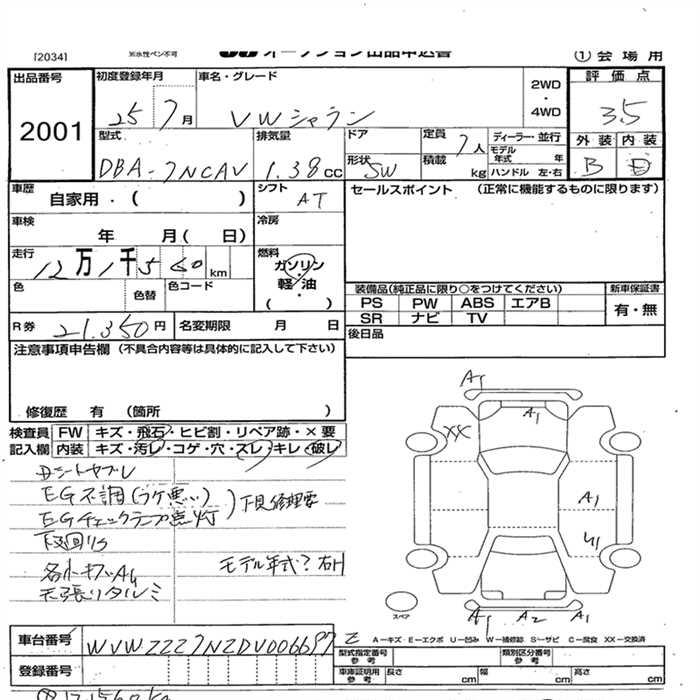 [2034]
※水性ペン不可
オークション出品申込書
①会場用
出品番号
2001
初度登録年月
25 7月
車名・グレード
VWシャラン
2WD
・
4WD
評価点
3.5
型式
DBA-7NCAV
排気量
1.38cc
ドア
形状
SW
定員
7人
積載
kg
ディーラー・並行
モデル年式 年
ハンドル 左・右
外装 内装
B D
車歴
自家用・( )
シフト
AT
セールスポイント (正常に機能するものに限ります)
車検
年 月( 日)
冷房
走行
12万1千560km
燃料
ガソリン
軽・油
( )
色
色替
色コード
装備品(純正品に限り○をつけてください)
新車保証書
PS PW ABS エアB
SR ナビ TV
有・無
R券
21,350円
名変期限 月 日
後日品
注意事項申告欄 (不具合内容等は具体的に記入して下さい)
修復歴 有 (箇所 )
検査員記入欄
FW キズ・飛石・ヒビ割・リペア跡・×要
内装 キズ・汚レ・コゲ・穴・スレ・キレ・破レ
Dシートヤブレ
EG不調(フケ悪い)
EGチェックランプ点灯
下見修理要
下回リS
各小キズA4
モデル年式?右H
天張リタルミ
A1
A1
XX
A1
A1
A2
A1
スペア
A-キズ E-エクボ U-凹み W-補修跡 S-サビ C-腐食 XX-交換済
車台番号
WVWZZZ7NZDV006697
登録番号
型式指定番号 参考
類別区分番号 参考
車庫証明用 参考
長さ cm
幅 cm
高さ cm